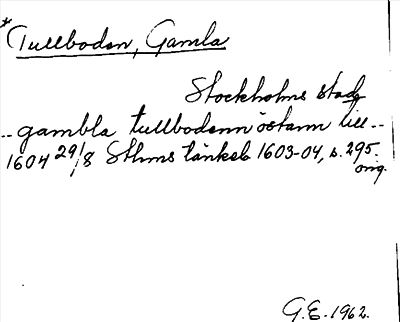 * Tullboden, Gamla
Stockholms stad
-- gambla tullbodenn östann till --
1604 29/8 Sthms tänkeb 1603-04, s. 295.
orig.
G.E. 1962.